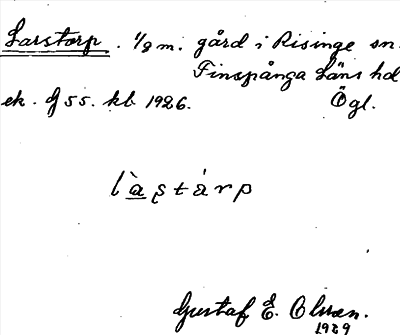 Larstorp. 1/2 m. gård i Risinge sn.
Finspånga Läns hd
ek. G 55. kb 1926. Ögl.
l`a̲ʂtárp
Gustaf E. Olsson.
1929